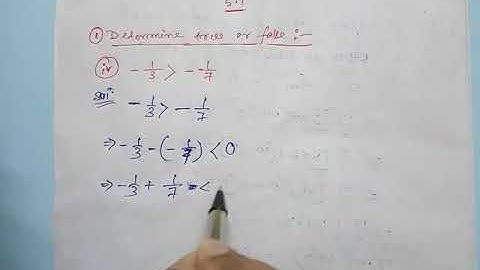 5.1
① Determine true or false :-
iv) -1/3 > -1/7
Solⁿ: -1/3 > -1/7
⇒ -1/3 - (-1/7) < 0
⇒ -1/3 + 1/7 <